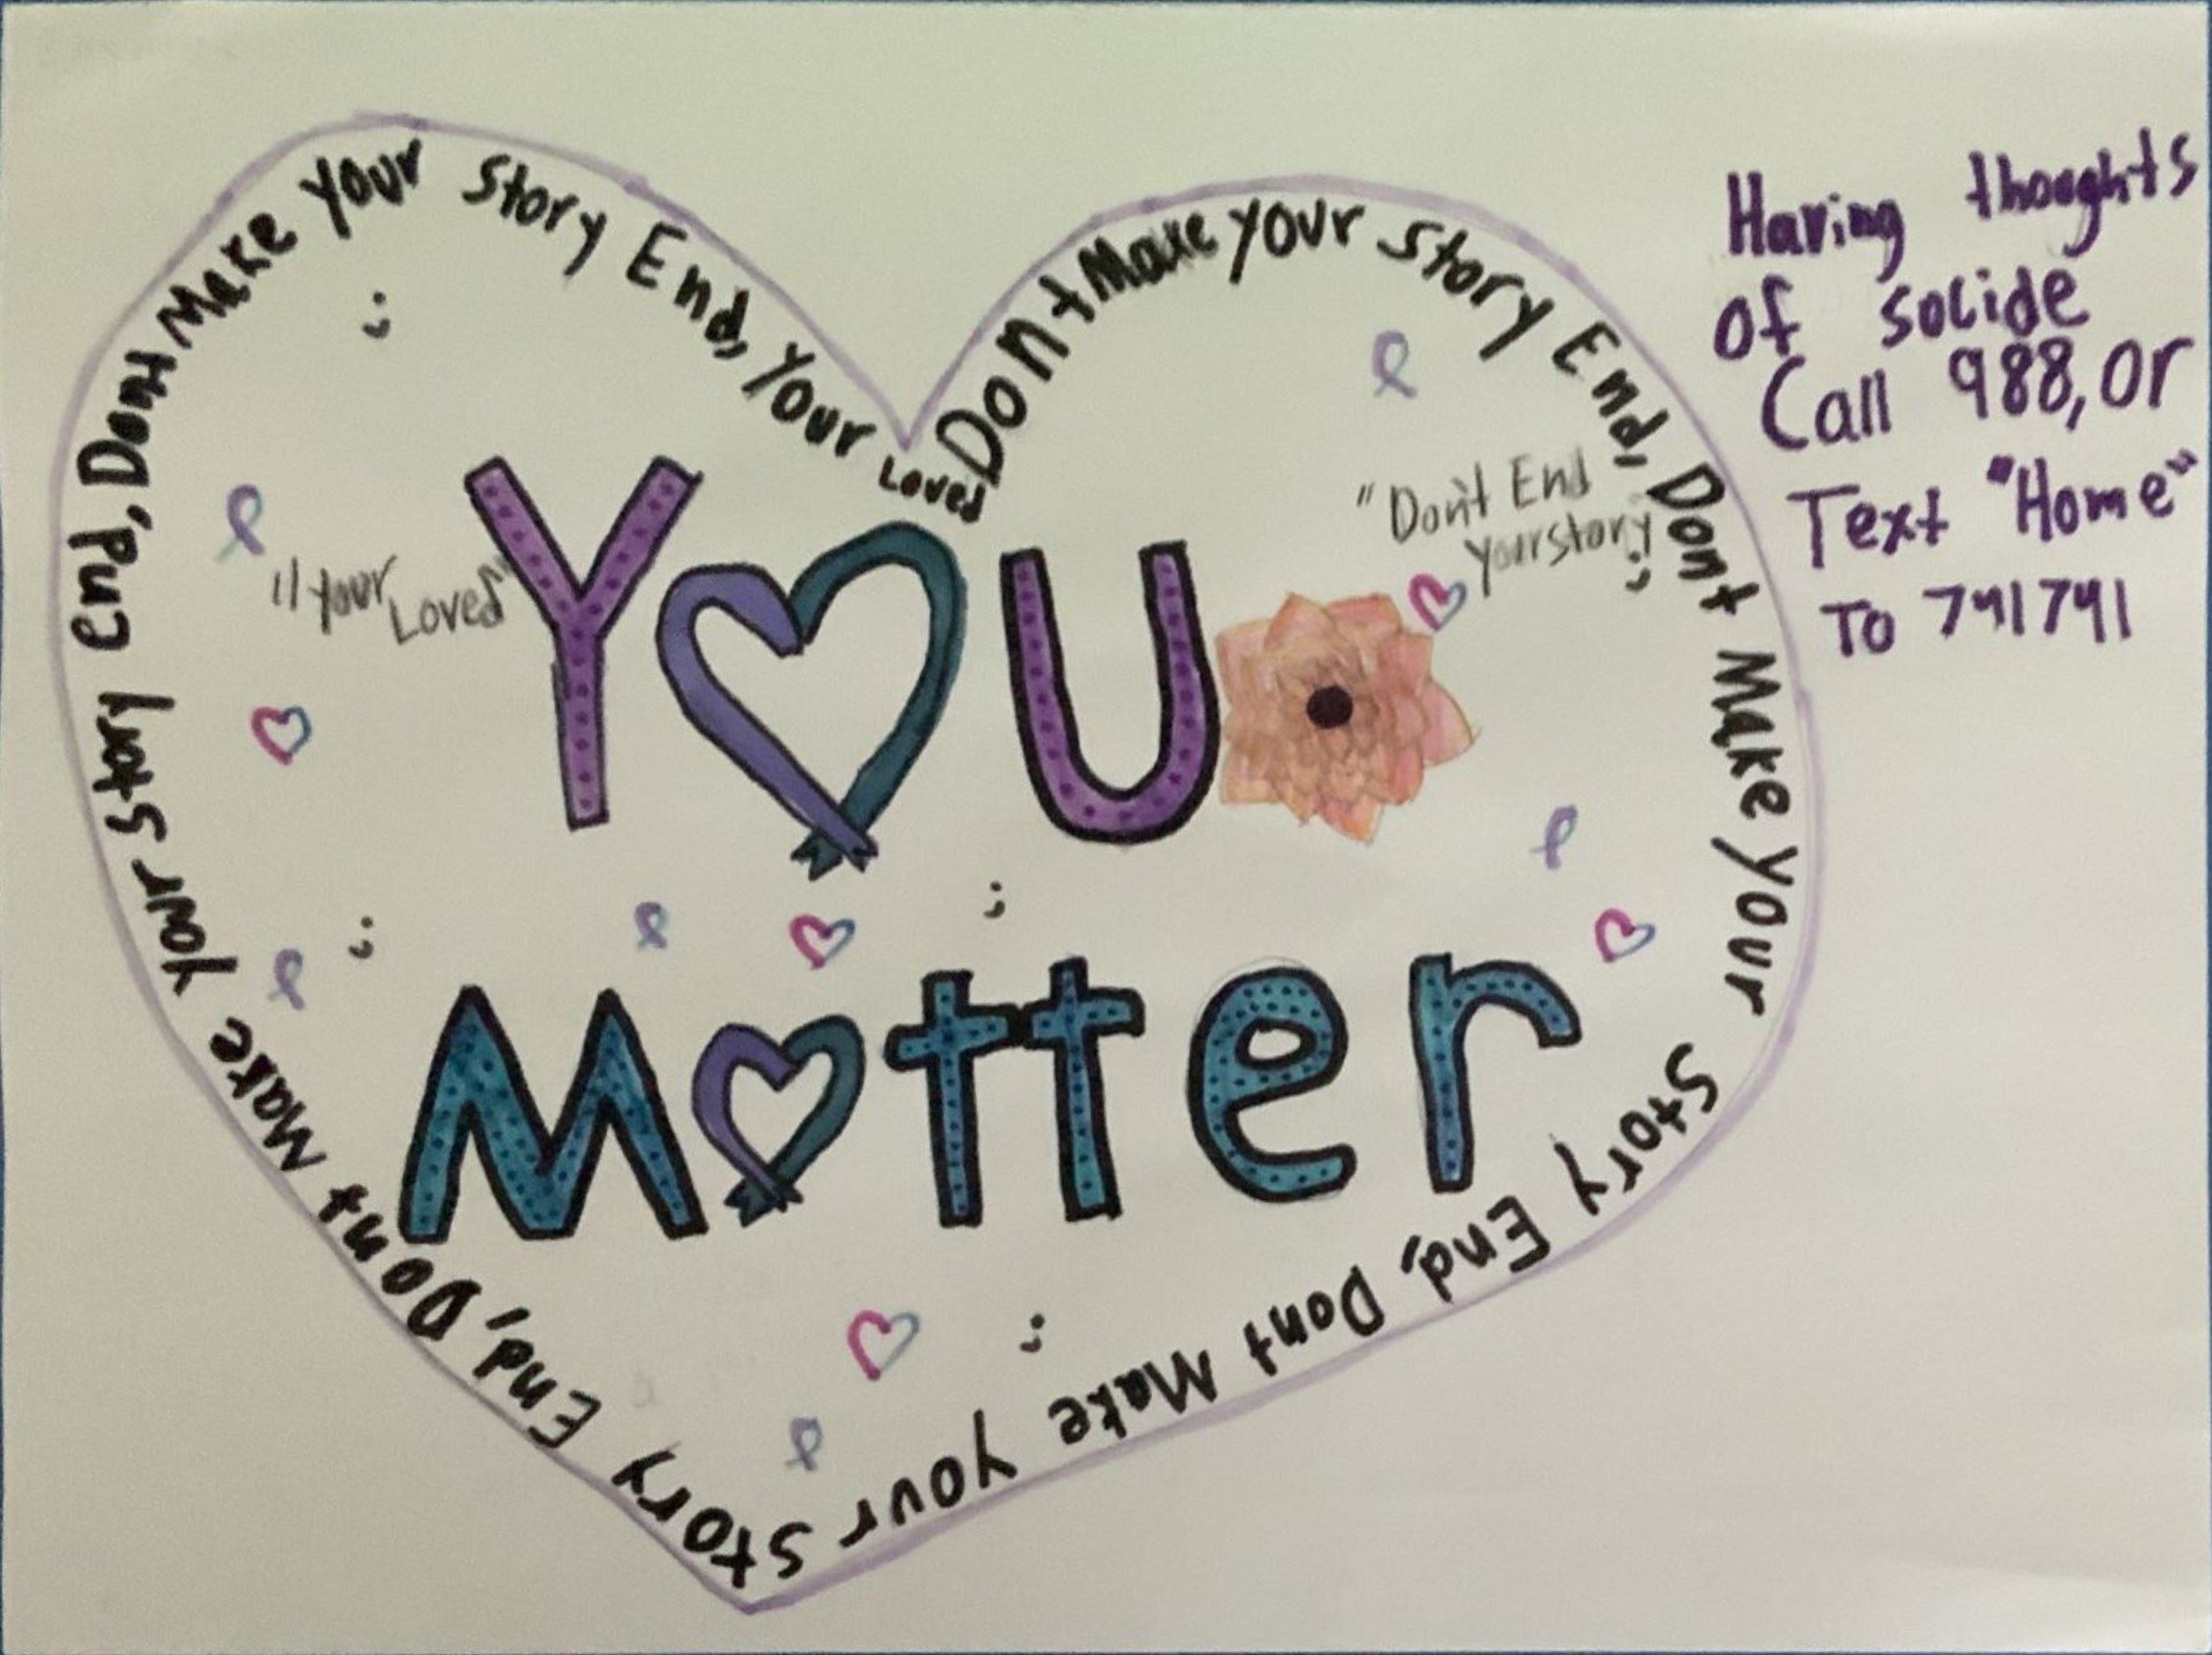 Dont Make Your Story End, Dont Make Your Story End, Dont Make Your Story End, Dont Make Your Story end, Dont Make Your Story End, Your Loved
"Your
Loved"
"Don't End
Your story;"
YOU
Matter
;
;
;
;
Having thoughts
of socide
Call 988, or
Text "Home"
To 741741